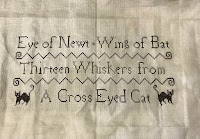 Eye of Newt - Wing of Bat
Thirteen Whiskers from
A Cross Eyed Cat